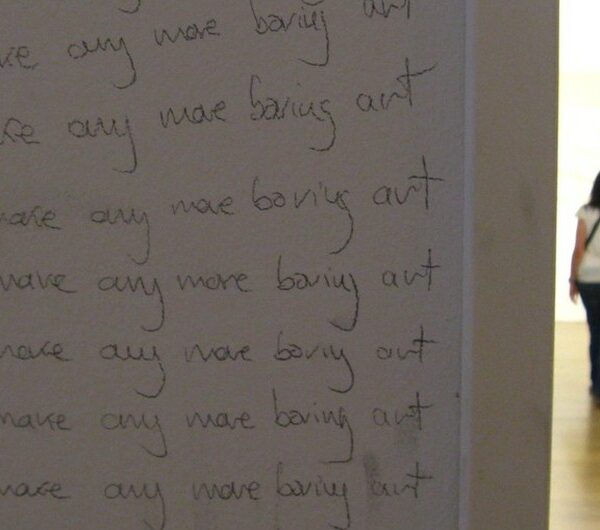 ke any more boring art
ke any more boring art
make any more boring art
make any more boring art
make any more boring art
make any more boring art
make any more boring art